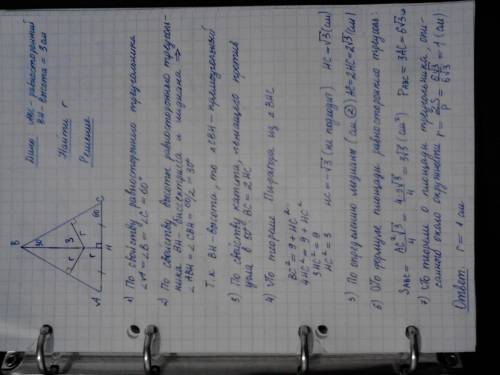 Дано: АВС - равносторонний
ВН - высота = 3 см
Найти: r
Решение
B
30
3
r
r
r
60
A
H
C
1) По свойству равностороннего треугольника
∠A = ∠B = ∠C = 60°
2) По свойству высоты равностороннего треуголь-
ника ВН - биссектриса и медиана ⇒
∠ABH = ∠CBH = 60/2 = 30°
Т.к ВН - высота, то △CBH - прямоугольный
3) По свойству катета, лежащего против
угла в 30° BC = 2HC
4) По теореме Пифагора из △BHC
BC² = 9 + HC²
4HC² = 9 + HC²
3HC² = 9
HC² = 3
HC = -√3 (не подходит) HC = √3 (см)
5) По определению медианы (см 2) AC = 2HC = 2√3 (см)
6) По формуле площади равностороннего треуголь:
S ABC = AC²√3/4 = 4·3√3/4 = 3√3 (см²) P ABC = 3AC = 6√3 см
7) По теореме о площади треугольника, опи-
санного около окружности r = 2S/P = 6√3/6√3 = 1 (см)
Ответ: r = 1 см